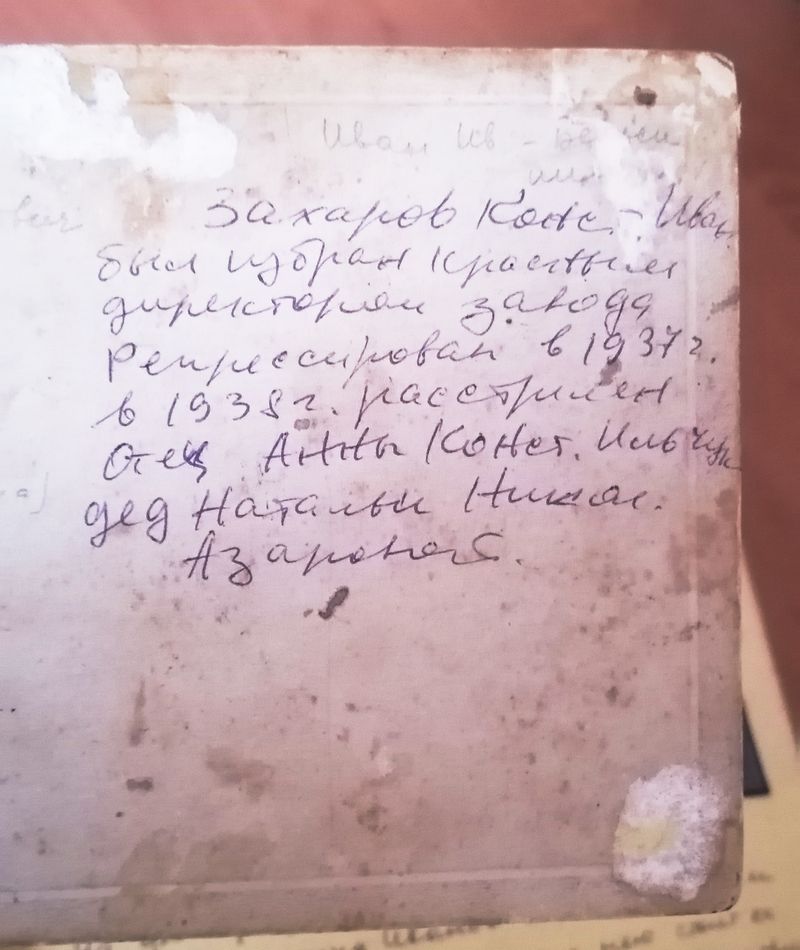 Иван Ив -
Захаров Конст. Иван.
был избран красным
директором завода
Репрессирован в 1937 г.
в 1938 г. расстрелен
Отец Анны Конст. Ильчук
дед Натальи Никол.
Азаровой.